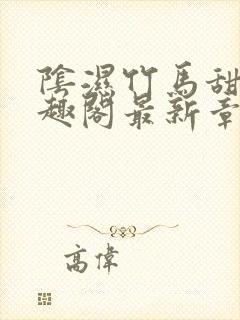 陰濕竹馬甜
趣閣最新章
高偉